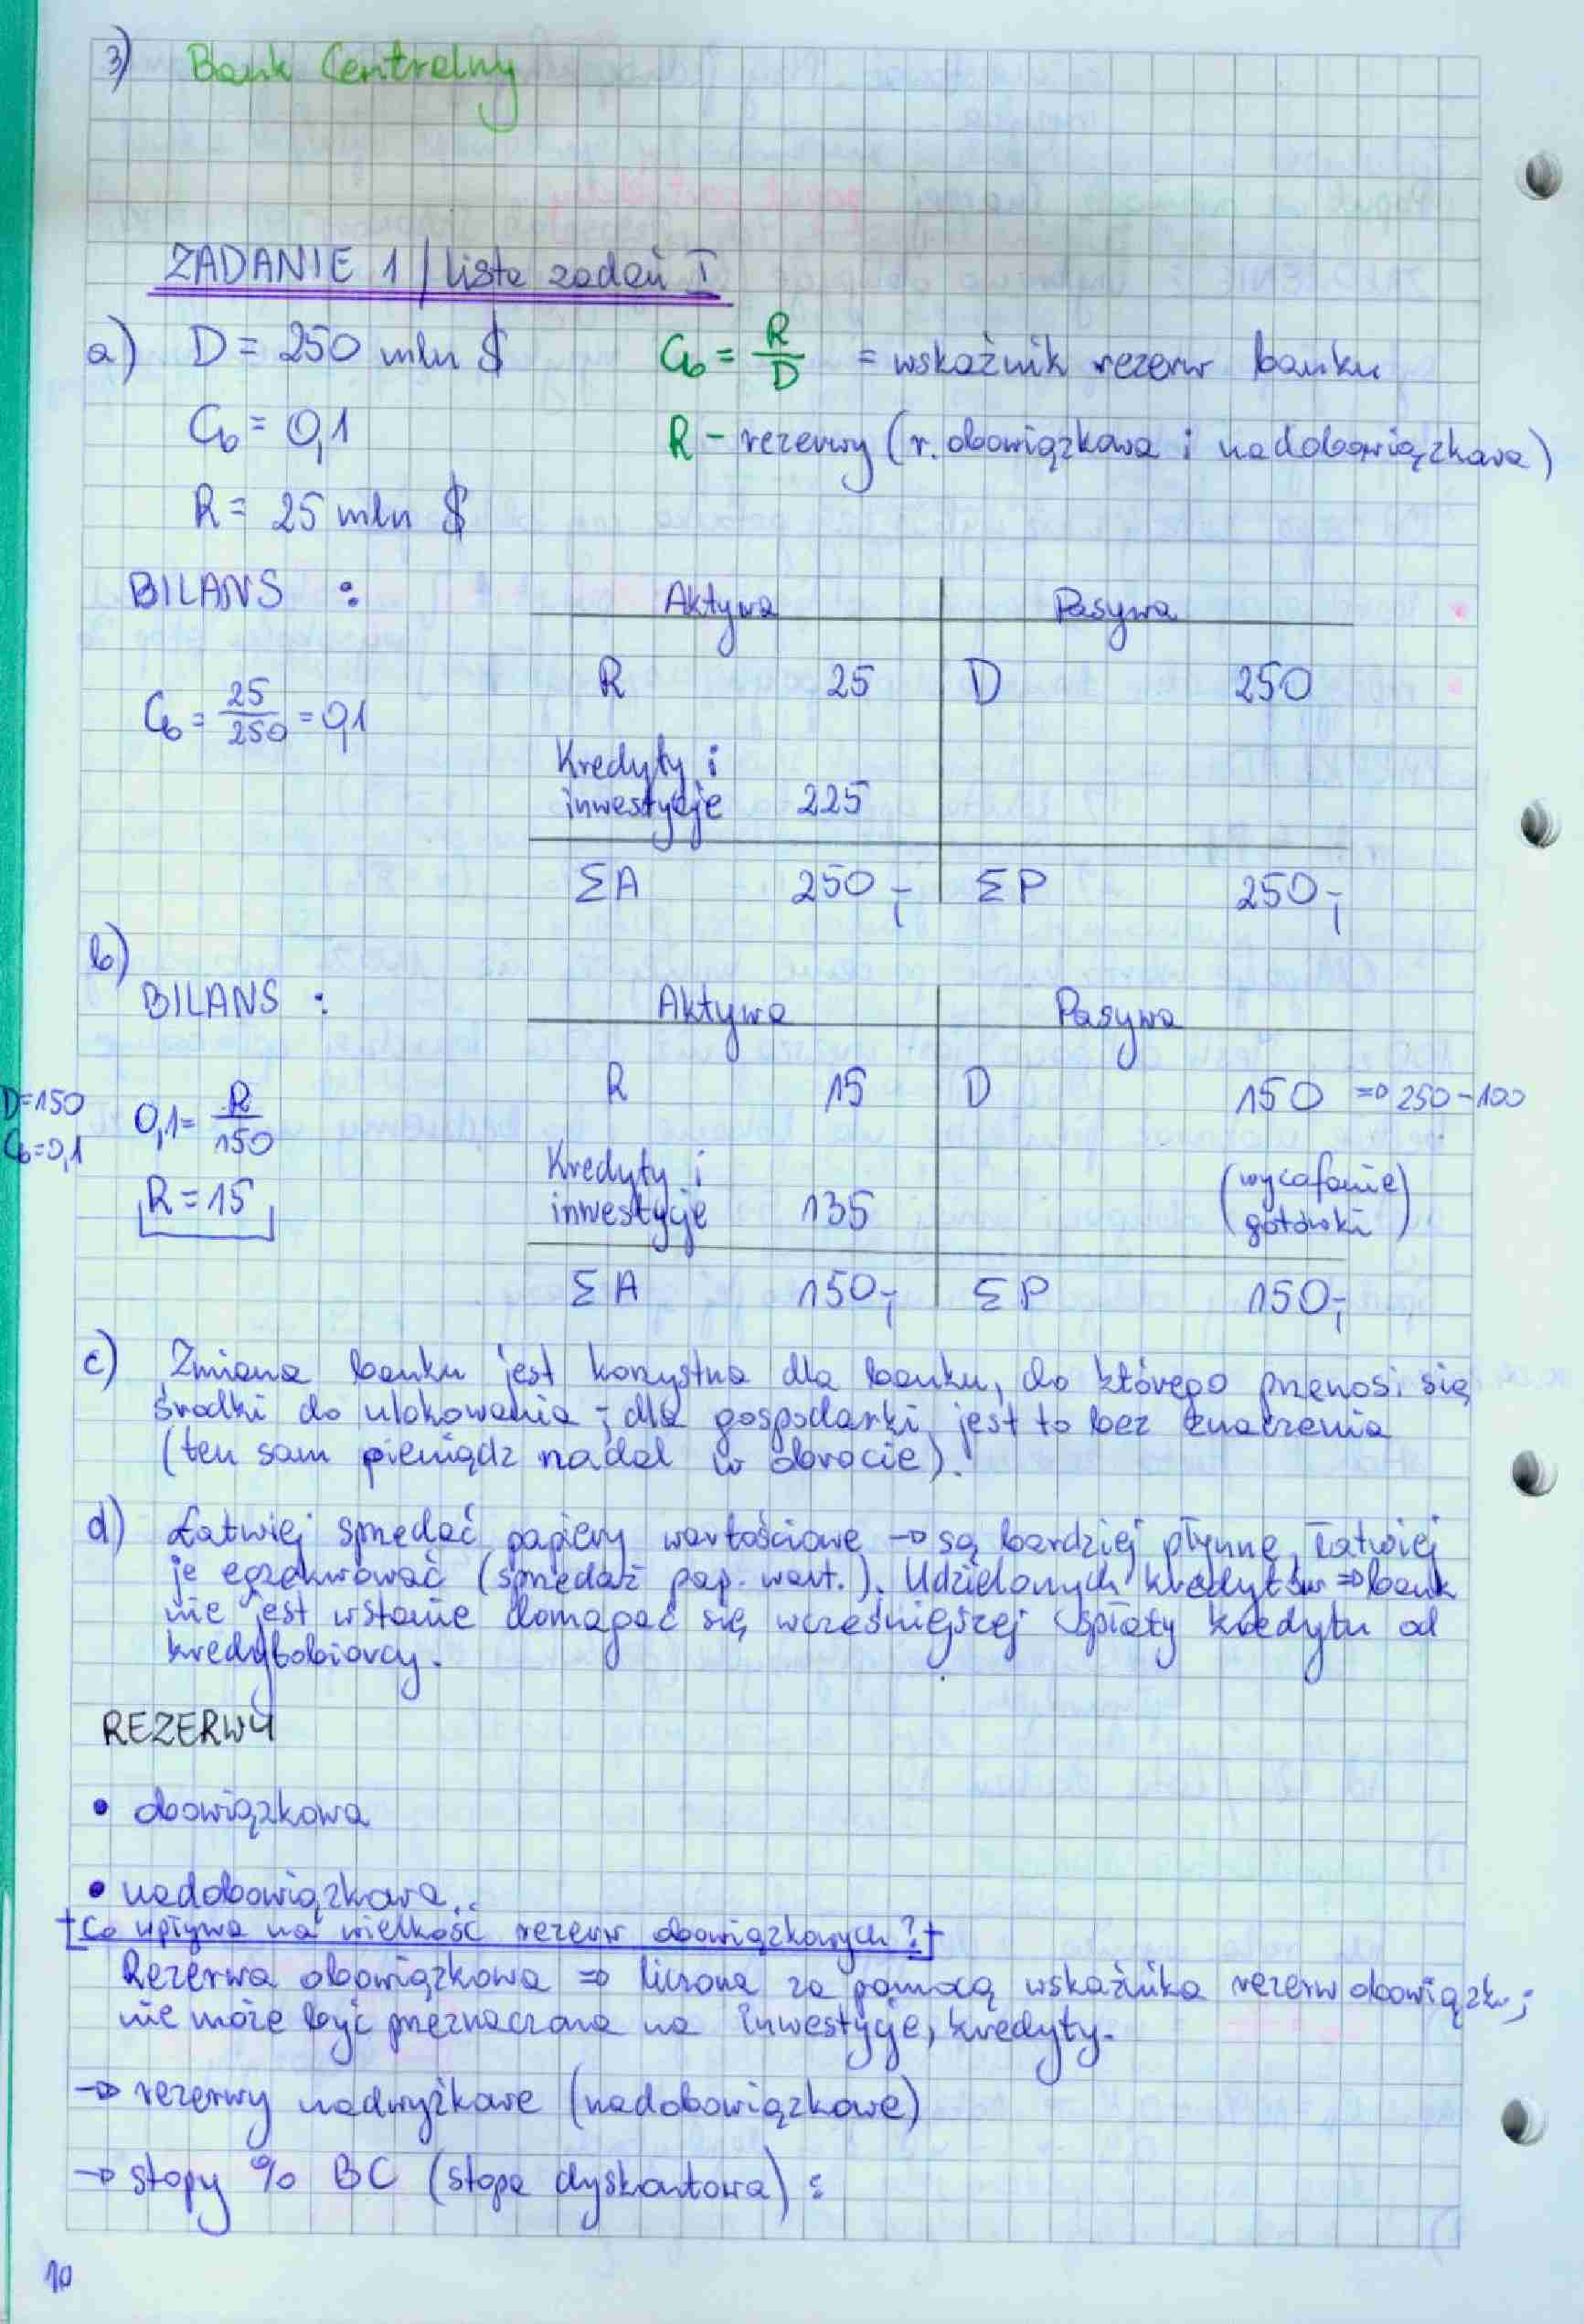 3) Bank Centralny
ZADANIE 1 / lista zadań I
a) D = 250 mln $
Cb = R/D = wskaźnik rezerw banku
Cb = 0,1
R - rezerwy (r. obowiązkowa i nadobowiązkowa)
R = 25 mln $
BILANS :
Aktywa Pasywa
R 25 D 250
Cb = 25/250 = 0,1
Kredyty i
inwestycje 225
ΣA 250,- ΣP 250,-
b)
BILANS :
Aktywa Pasywa
R 15 D 150 => 250-100
D=150
Cb=0,1
0,1 = R/150
R = 15
Kredyty i
inwestycje 135
(wycofanie
gotówki)
ΣA 150,- ΣP 150,-
c) Zmiana banku jest korzystna dla banku, do którego przenosi się
środki do ulokowania ; dla gospodarki jest to bez znaczenia
(ten sam pieniądz nadal w obrocie).
d) Łatwiej sprzedać papiery wartościowe → są bardziej płynne, łatwiej
je egzekwować (sprzedaż pap. wart.). Udzielonych kredytów => bank
nie jest wstanie domagać się wcześniejszej spłaty kredytu od
kredytobiorcy.
REZERWY
• obowiązkowa
• nadobowiązkowa
Co wpływa na wielkość rezerw obowiązkowych ?
Rezerwa obowiązkowa => liczona za pomocą wskaźnika rezerw obowiązk. ;
nie może być przeznaczona na inwestycje, kredyty.
→ rezerwy nadwyżkowe (nadobowiązkowe)
→ stopy % BC (stopa dyskontowa) :
10